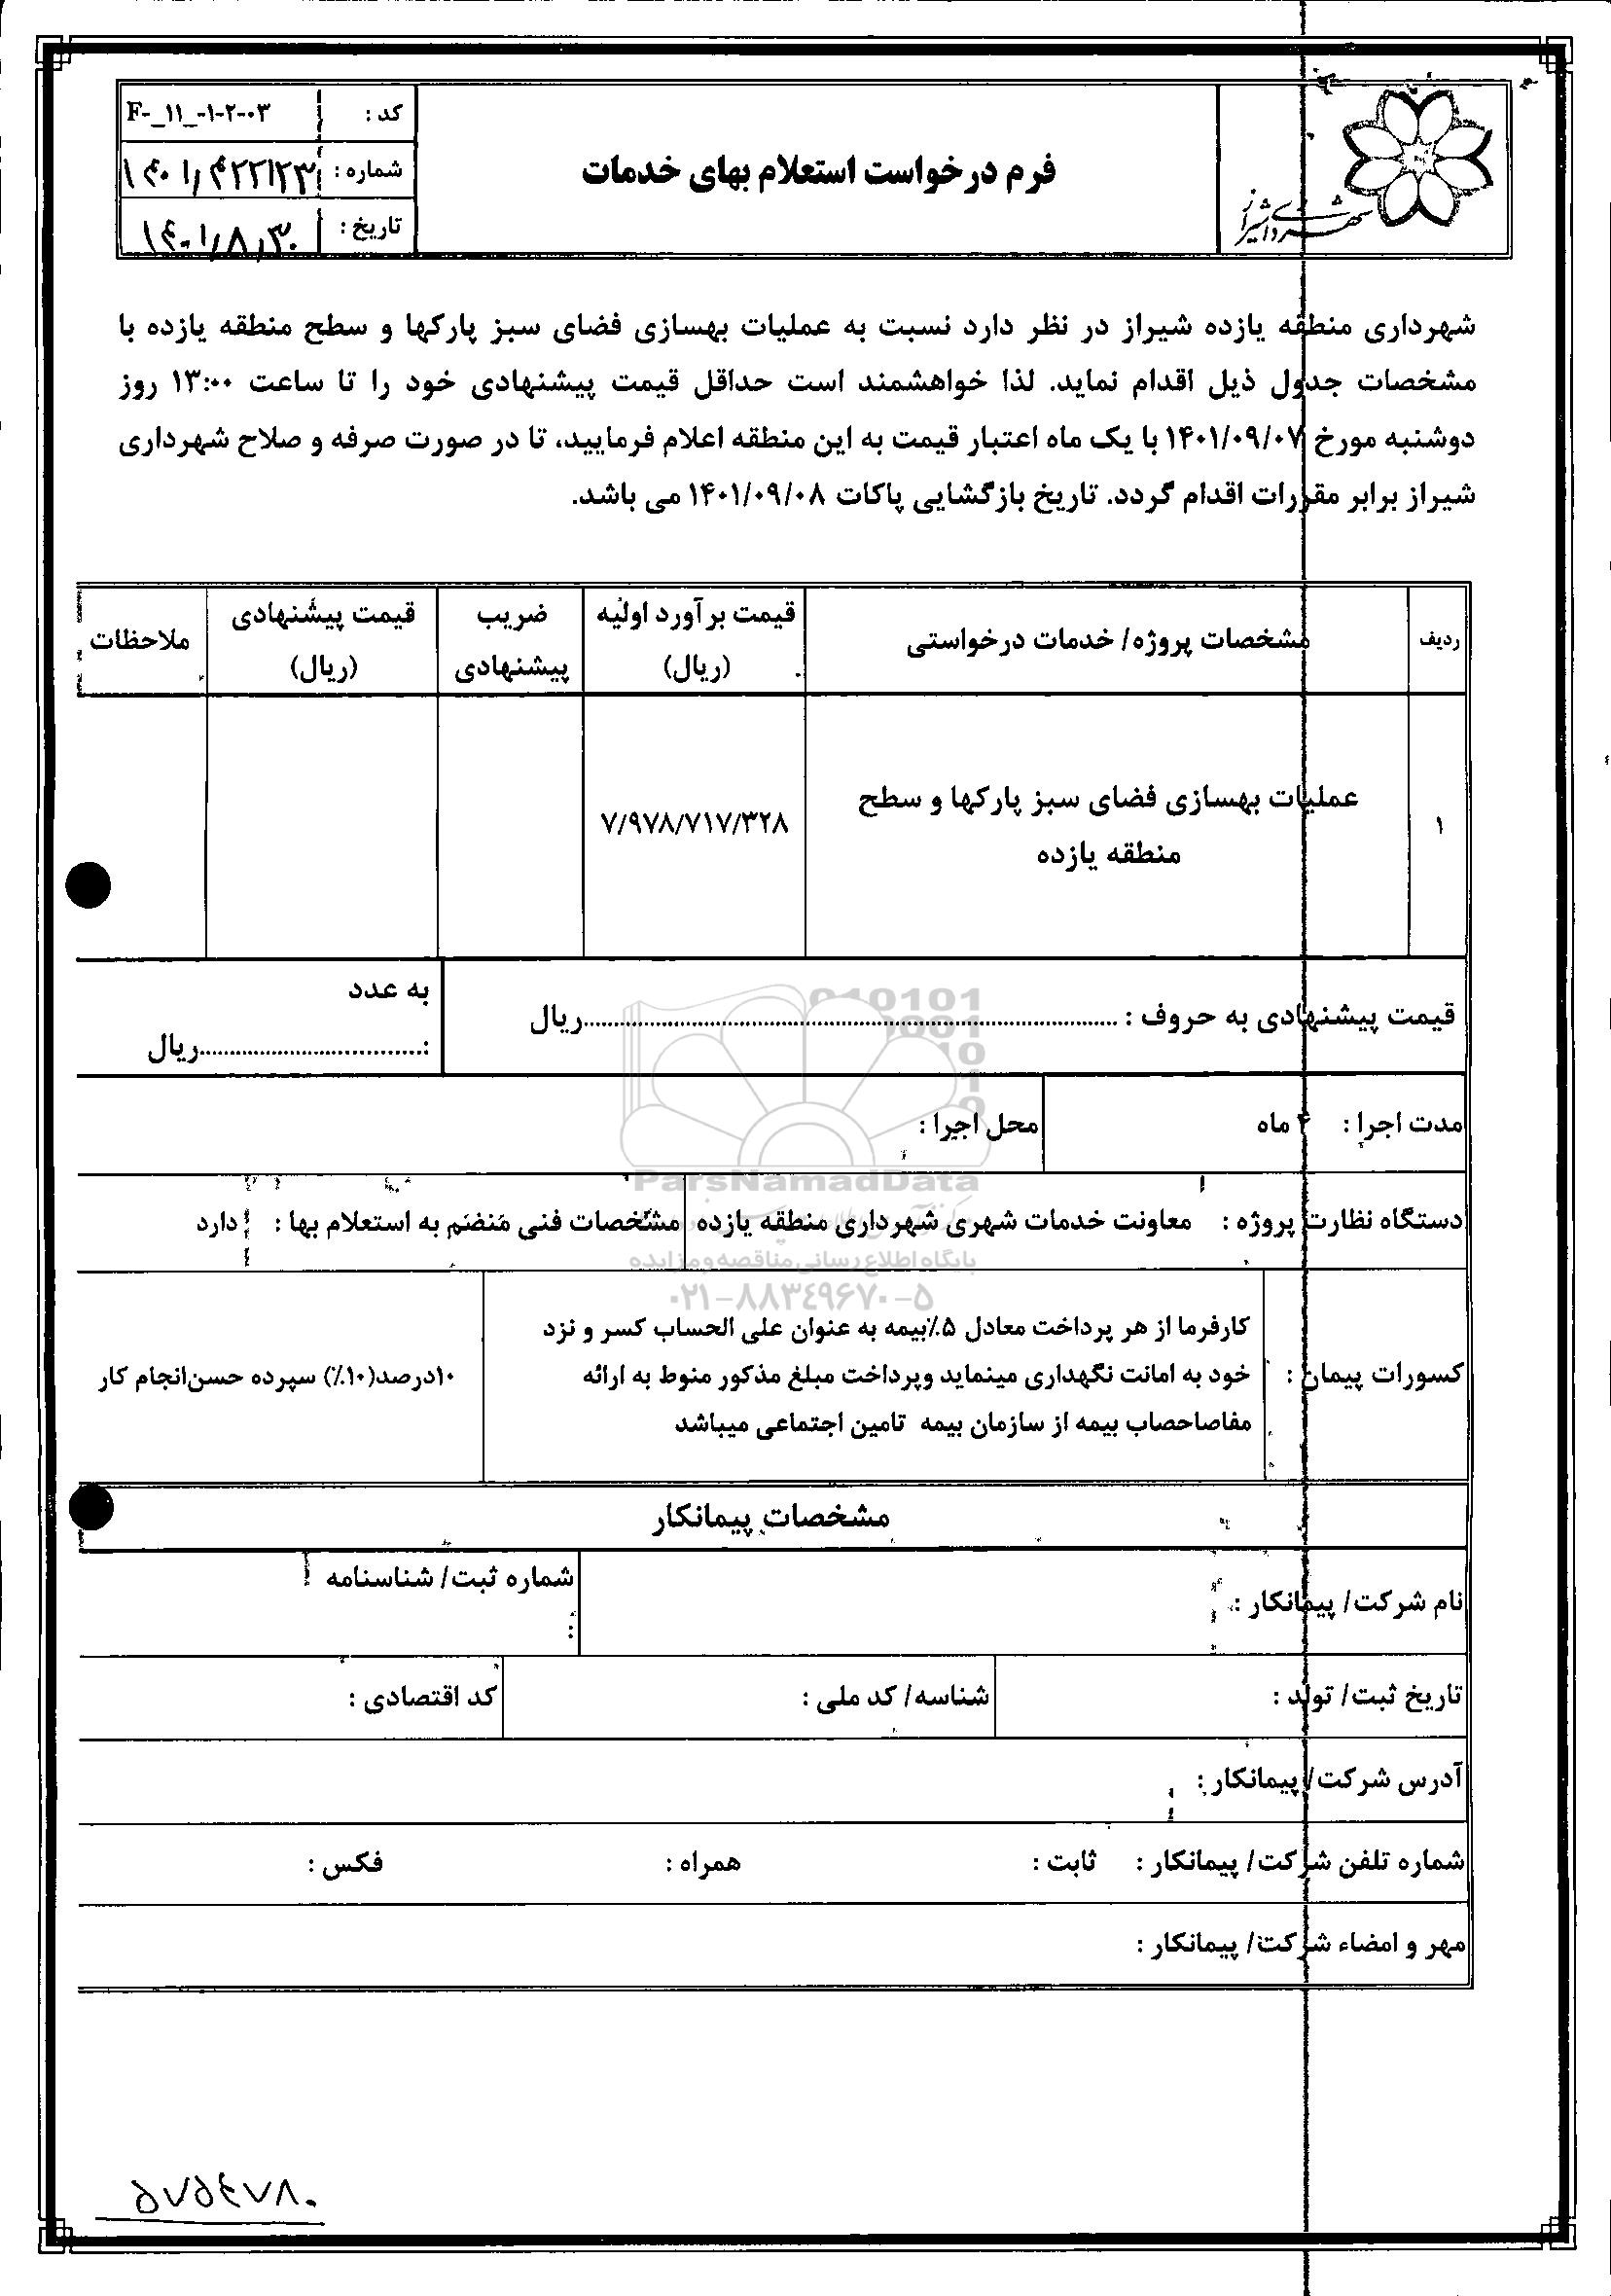 شهرداری شیراز
فرم درخواست استعلام بهای خدمات
کد : F-_۱۱_-۱-۲-۰۳
شماره : ۱۴۰۱/۴۲۲۱۲۳
تاریخ : ۱۴۰۱/۸/۳۰
شهرداری منطقه یازده شیراز در نظر دارد نسبت به عملیات بهسازی فضای سبز پارکها و سطح منطقه یازده با
مشخصات جدول ذیل اقدام نماید. لذا خواهشمند است حداقل قیمت پیشنهادی خود را تا ساعت ۱۳:۰۰ روز
دوشنبه مورخ ۱۴۰۱/۰۹/۰۷ با یک ماه اعتبار قیمت به این منطقه اعلام فرمایید، تا در صورت صرفه و صلاح شهرداری
شیراز برابر مقررات اقدام گردد. تاریخ بازگشایی پاکات ۱۴۰۱/۰۹/۰۸ می باشد.
ردیف
مشخصات پروژه/ خدمات درخواستی
قیمت برآورد اولیه
(ریال)
ضریب
پیشنهادی
قیمت پیشنهادی
(ریال)
ملاحظات
۱
عملیات بهسازی فضای سبز پارکها و سطح
منطقه یازده
۷/۹۷۸/۷۱۷/۳۲۸
قیمت پیشنهادی به حروف : ........................................................................ریال
به عدد
:................................ریال
مدت اجرا : ۴ ماه
محل اجرا :
دستگاه نظارت پروژه : معاونت خدمات شهری شهرداری منطقه یازده
مشخصات فنی منضم به استعلام بها : دارد
کسورات پیمان :
کارفرما از هر پرداخت معادل ۵٪بیمه به عنوان علی الحساب کسر و نزد
خود به امانت نگهداری مینماید وپرداخت مبلغ مذکور منوط به ارائه
مفاصاحصاب بیمه از سازمان بیمه تامین اجتماعی میباشد
۱۰درصد(۱۰٪) سپرده حسن‌انجام کار
مشخصات پیمانکار
نام شرکت/ پیمانکار :
شماره ثبت/ شناسنامه
:
تاریخ ثبت/ تولد :
شناسه/ کد ملی :
کد اقتصادی :
آدرس شرکت/ پیمانکار :
شماره تلفن شرکت/ پیمانکار : ثابت :
همراه :
فکس :
مهر و امضاء شرکت/ پیمانکار :
ParsNamadData
پایگاه اطلاع رسانی مناقصه و مزایده
۰۲۱-۸۸۳۴۹۶۷۰-۵
۵۷۵۴۷۸۰